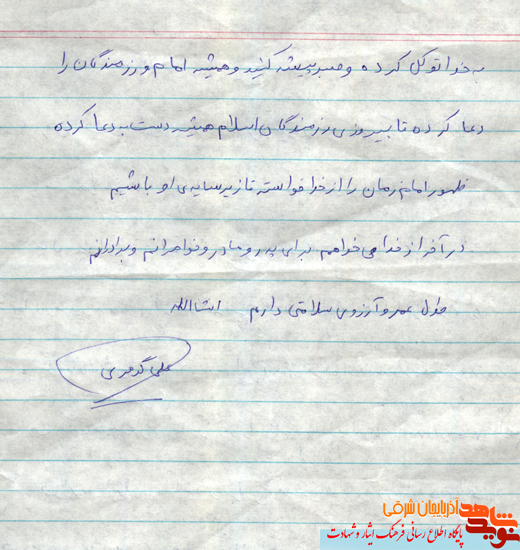 به خدا توکل کرده و صبر پیشه کنید و همیشه امام و رزمندگان را
دعا کرده تا پیروزی رزمندگان اسلام همیشه دست به دعا کرده
ظهور امام زمان را از خدا خواسته تا زیر سایه ی او باشیم
در آخر از خدا می خواهم برای پدر و مادر و خواهرانم و برادرانم
طول عمر و آرزوی سلامتی دارم انشاالله
علی
نوید شاهد آذربایجان شرقی
پایگاه اطلاع رسانی فرهنگ ایثار و شهادت